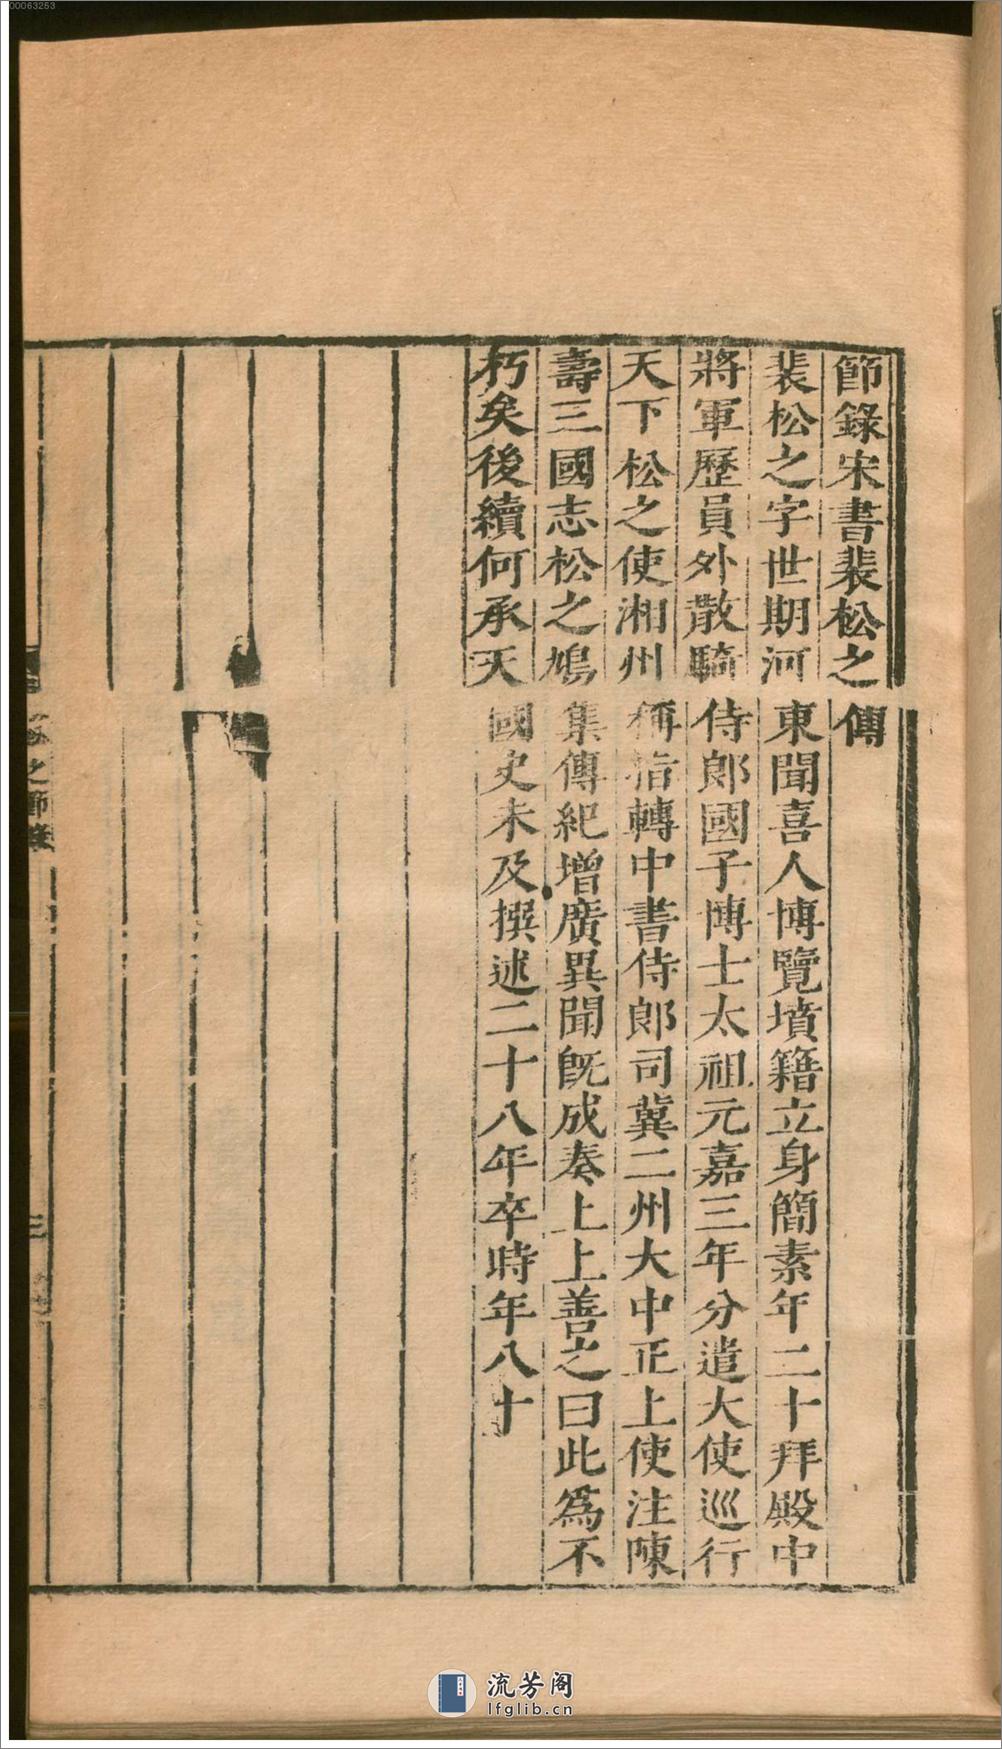 節錄宋書裴松之傳
裴松之字世期河東聞喜人博覽墳籍立身簡素年二十拜殿中
將軍歷員外散騎侍郎國子博士太祖元嘉三年分遣大使巡行
天下松之使湘州稱旨轉中書侍郎司冀二州大中正上使注陳
壽三國志松之鳩集傳紀增廣異聞旣成奏上上善之曰此爲不
朽矣後續何承天國史未及撰述二十八年卒時年八十
之節錄
三
00063253
流芳阁
lfglib.cn